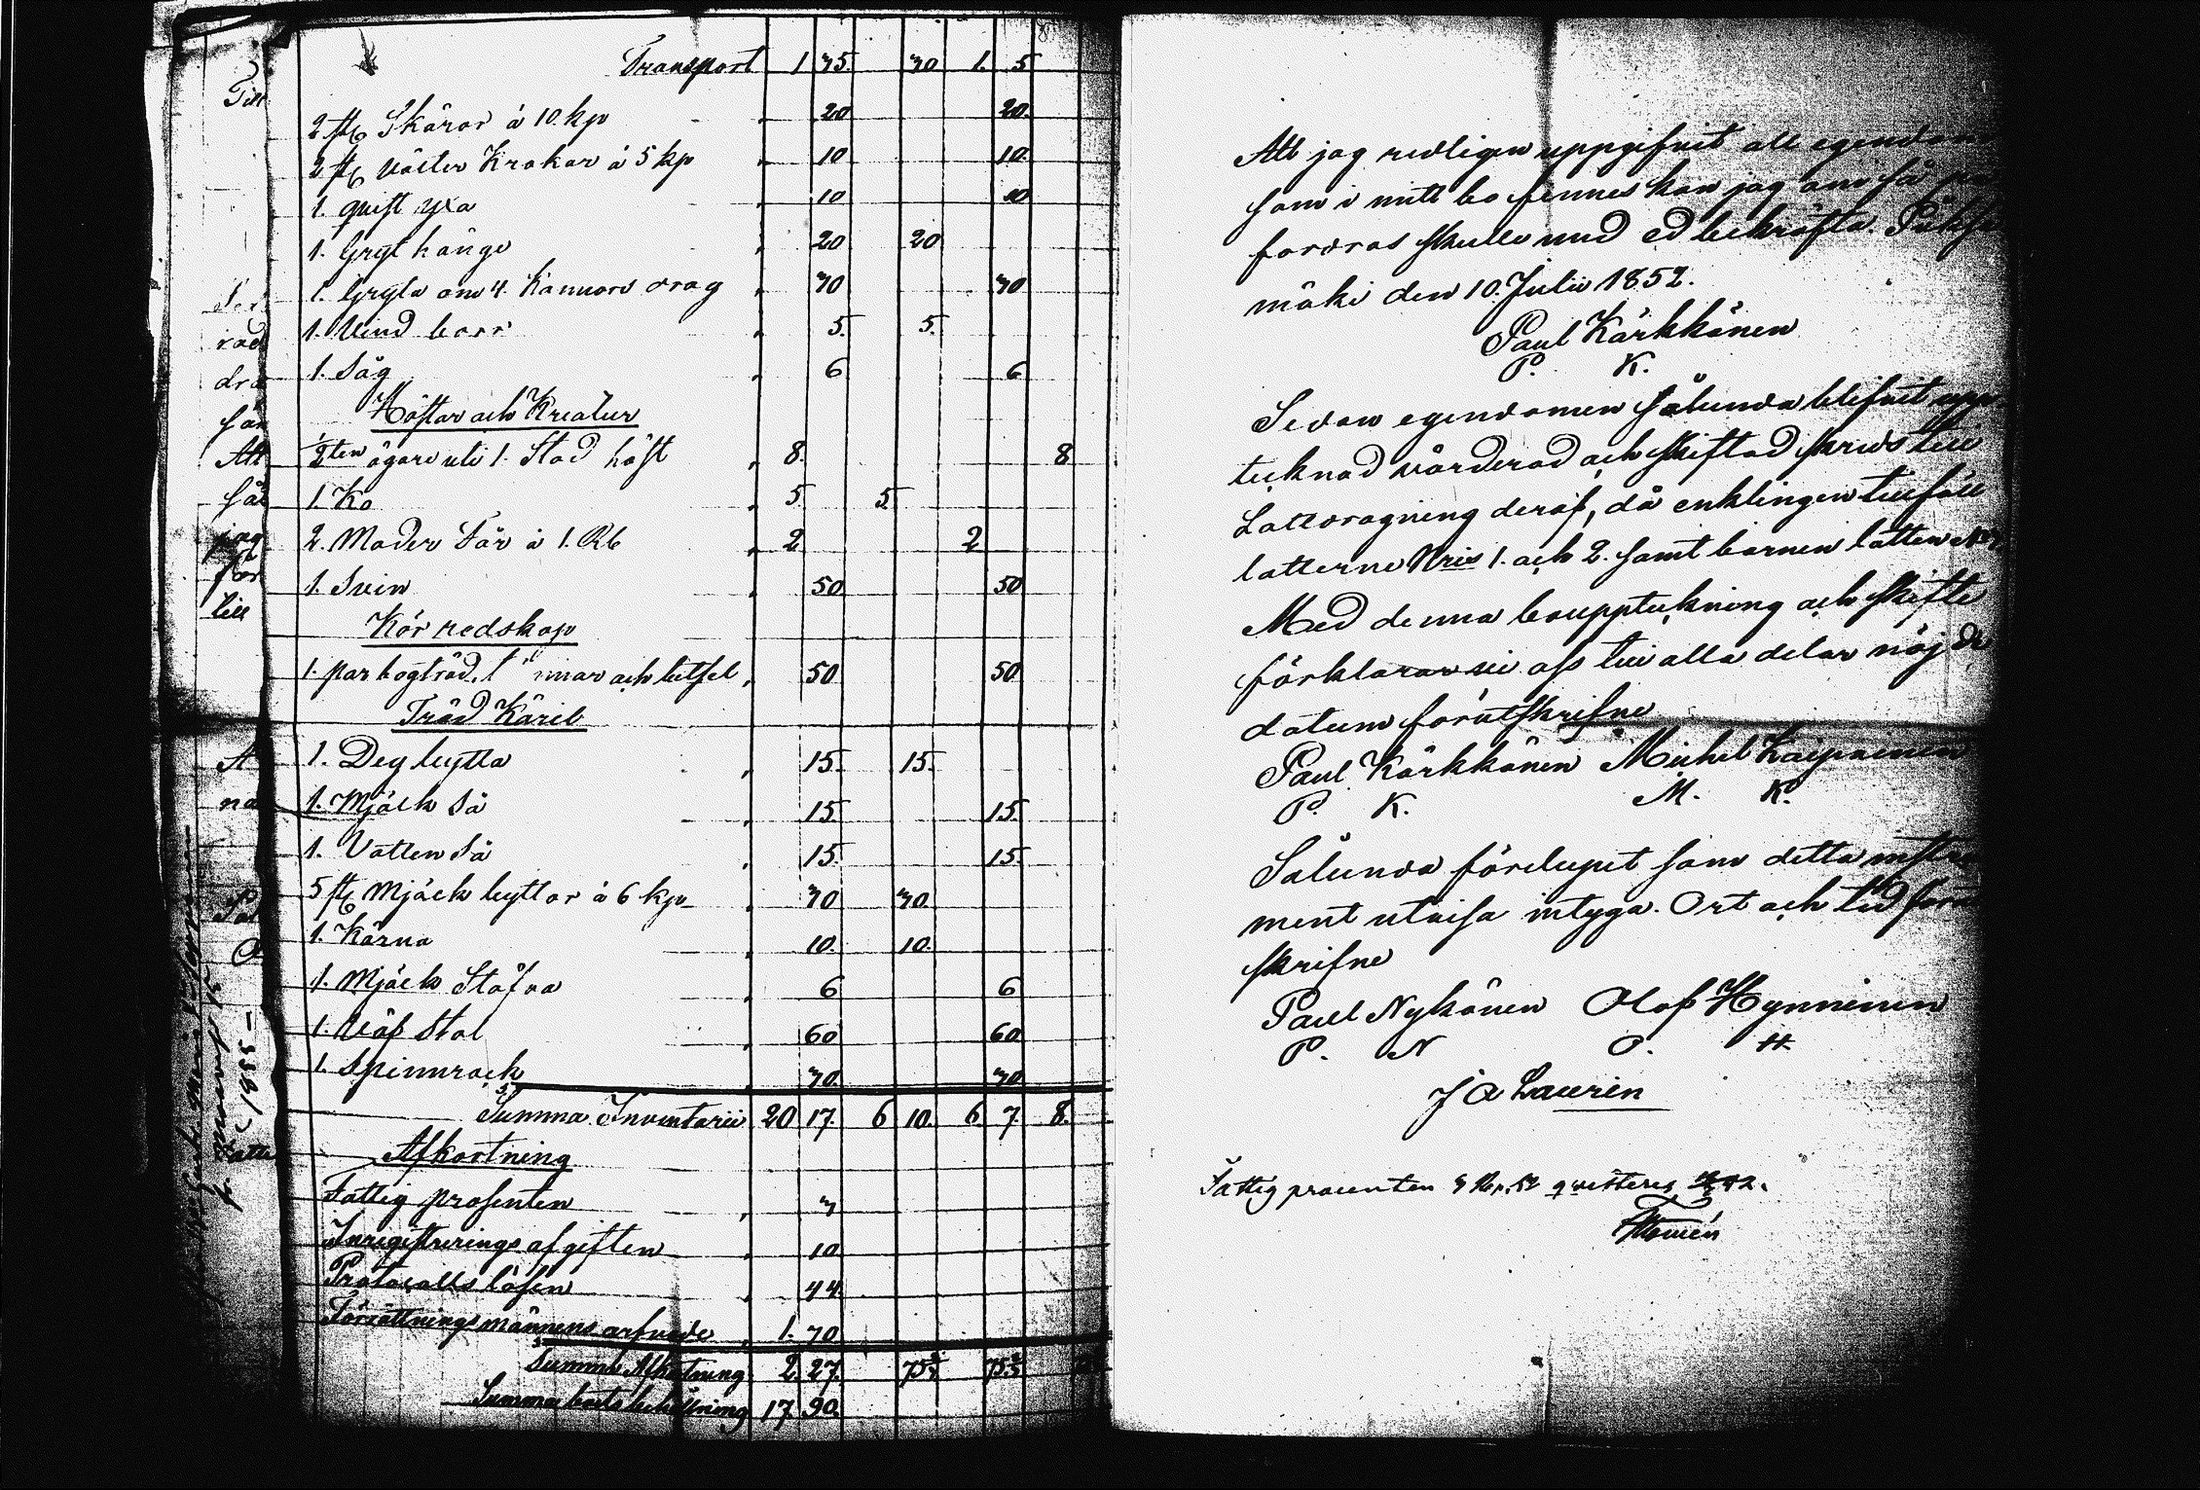 Transport 1 75. 70 1. 5
2 st Skäror á 10. kp 20 20.
2 st välter Krokar á 5 kp 10 10.
1. quist yxa 10 10
1. Gryt hänge 20 20
1. Gryta om 4. Kannors drag 70 70
1. Vind borr 5. 5.
1. Såg 6 6
Hästar och Kreatur
1/2ten ägare uti 1. Stod häst 8. 8
1. Ko 5. 5
2. Moder Får á 1. Rb 2 2
1. Svin 50 50
Kör redskap
1. par bogträd, och betsel 50 50
Träd Käril
1. Deg bytta 15. 15.
1. Mjölk så 15. 15.
1. Vatten så 15. 15.
5 st mjölk byttor á 6 kp 70 70.
1. Kärna 10. 10.
1. Mjölk Stäfva 6 6
1. Väf Stol 60 60
1. Spinnrock 70 70
Summa Inventarii 20 17. 6 10. 6 7. 8.
Afkortning
Fattig prosenten 7
Inregistrerings afgiften 10
Protocolls lösen 44
Förrättningsmännens arfvode 1. 70
Summa Afkortning 2. 27. 75 75
Summa boets behållning 17 90.
Till
rad
dra
Att
jag
för
till
na
1855
Att jag redligen uppgifvit all egendom
som i mitt bo finnes kan jag om så
fordras skulle med ed bekräfta.
mäki den 10. Julii 1852.
Paul Kärkkänen
P. K.
Sedan egendomen sålunda blifvit upp
tecknad värderad och skiftad skreds till
Lottdragning deraf, då enklingen tillföll
lotterne Nris 1. och 2. samt barnen lotten
Med denna bouppteckning och skifte
förklarar vi oss till alla delar nöjde
datum förutskrifne
Paul Kärkkänen Michel Kaipainen
P. K. M. K.
Sålunda förelupit som detta instru
ment utvisa intyga. Ort och tid förut
skrifne
Paul Nykänen Olof Hynninen
P. N O. H.
J A Laurin
Fattig procenten qvitteras